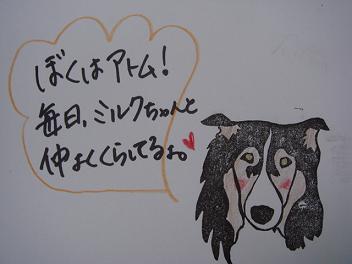 ぼくはアトム!
毎日、ミルクちゃんと
仲よくくらしてるよ。